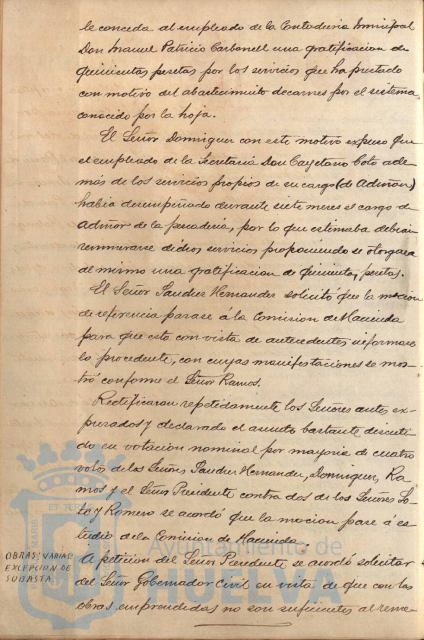 le conceda al empleado de la Contaduria Municipal
Don Manuel Patricio Carbonell una gratificacion de
quinientas pesetas por los servicios que ha prestado
con motivo del abastecimiento de carnes por el sistema
conocido por la hoja.
El Señor Dominguez con este motivo expreso que
el empleado de la Secretaria Don Cayetano Coto ade
más de los servicios propios de su cargo (de Admñon)
habia desempeñado durante siete meses el cargo de
Admñor de la panaderia, por lo que estimaba debian
remunerarse dichos servicios proponiendo se otorgara
al mismo una gratificacion de quinientas pesetas.
El Señor Sanchez Hernandez solicitó que la mocion
de referencia pasase á la Comision de Hacienda
para que esta con vista de antecedentes informase
lo procedente, con cuyas manifestaciones se mos-
tró conforme el Señor Ramos.
Rectificaron repetidamente los Señores antes ex-
presados y declarado el asunto bastante discuti
do en votacion nominal por mayoria de cuatro
votos de los Señores Sanchez Hernandez, Dominguez, Ra
mos y el Señor Presidente contra dos de los Señores
y Romero se acordó que la mocion pase á es
tudio de la Comision de Hacienda.
OBRAS: VARIAS
EXCEPCION DE
SUBASTA
A peticion del Señor Presidente se acordó solicitar
del Señor Gobernador Civil en vista de que con las
obras emprendidas no son suficientes al reme-
Ayuntamiento de
HUELVA